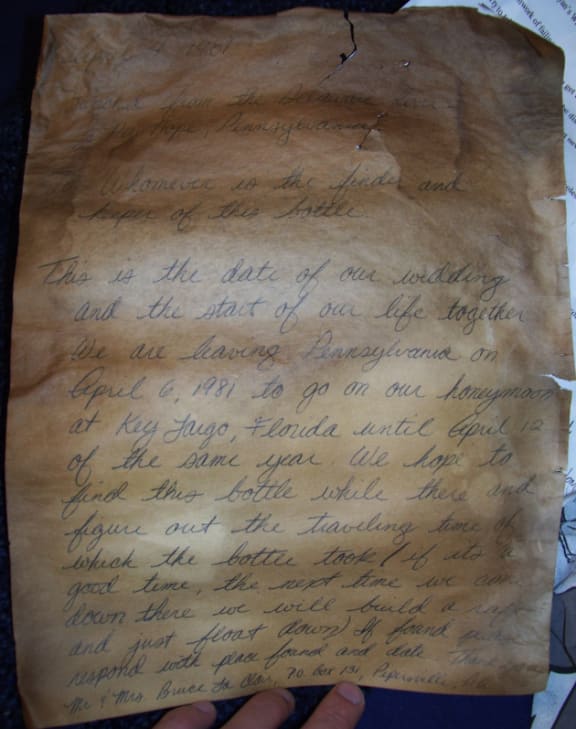 April 4, 1981
from the Delaware River
Hope, Pennsylvania
Whomever is the finder and
keeper of this bottle
This is the date of our wedding
and the start of our life together
We are leaving Pennsylvania on
April 6, 1981 to go on our honeymoon
at Key Largo, Florida until April 12
of the same year. We hope to
find this bottle while there and
figure out the traveling time of
which the bottle took (if its a
good time, the next time we
down there we will build a raft
and just float down) If found please
respond with place found and date Thank
Mr & Mrs Bruce La Clar, PO Box 131, Pipersville, Pa
work of